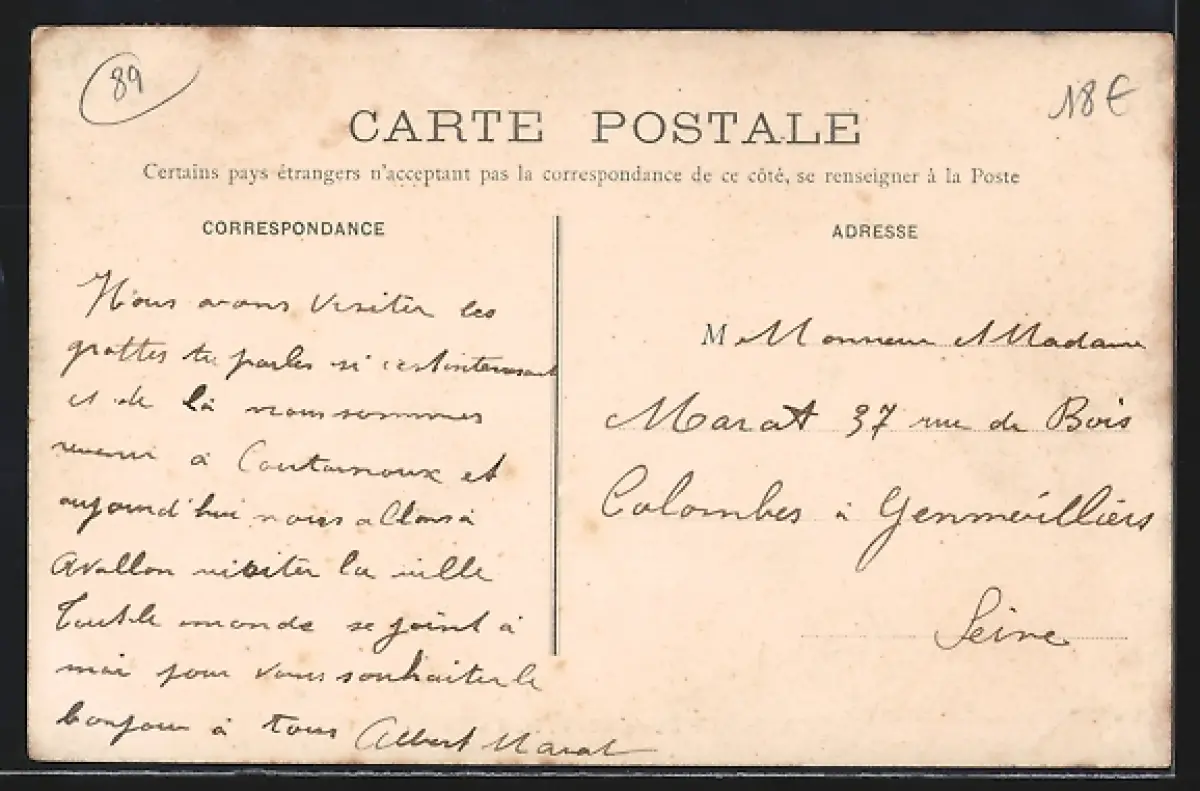 89
18€
CARTE POSTALE
Certains pays étrangers n'acceptant pas la correspondance de ce côté, se renseigner à la Poste
CORRESPONDANCE
Nous avons visiter les
grottes tu parles si c'est interessant
et de là nous sommes
revenu à Coutarnoux et
aujourd'hui nous allons à
Avallon visiter la ville
Tout le monde se joint à
moi pour vous souhaiter le
bonjour à tous Albert Marat
ADRESSE
M Monsieur et Madame
Marat 37 rue de Bois
Colombes à Gennevilliers
Seine